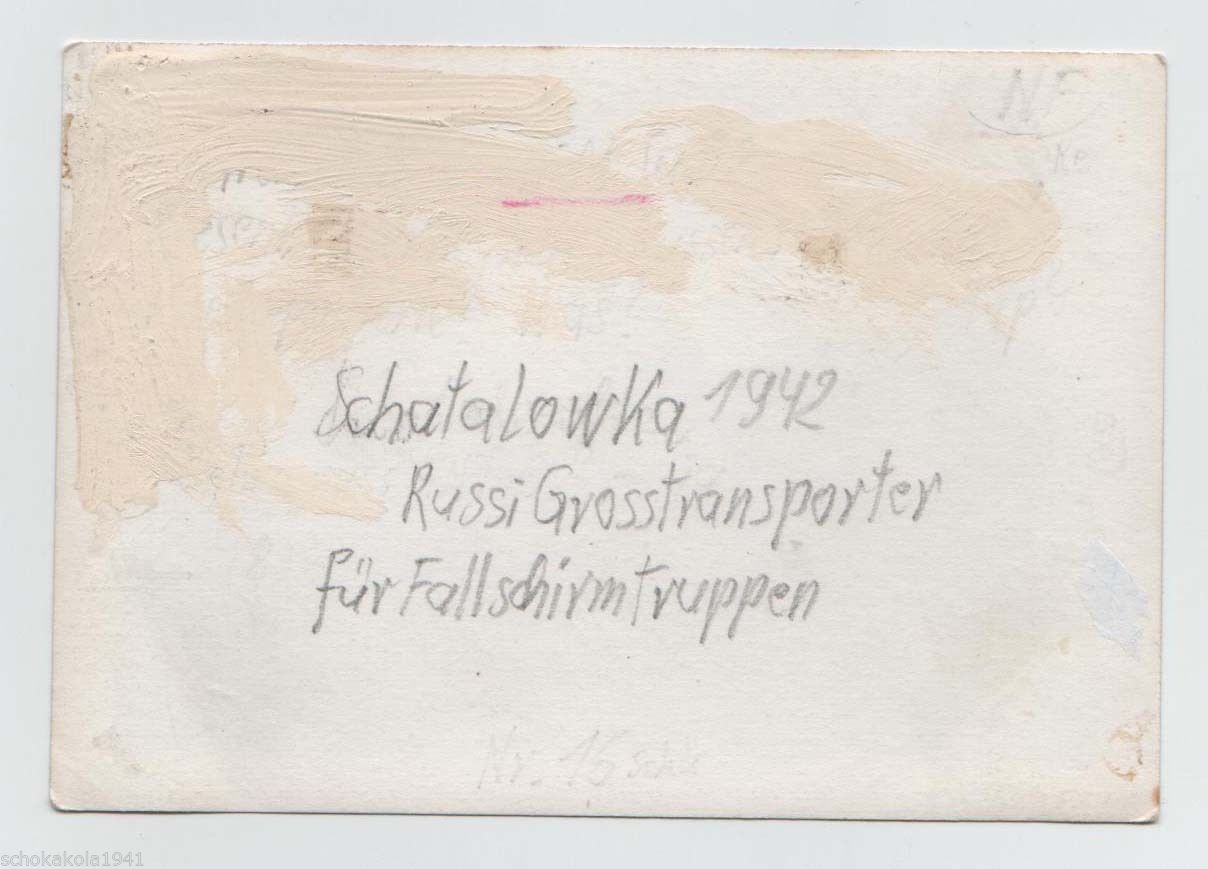 NF
Ke
Schatalowka 1942
Russi Grosstransporter
für Fallschirmtruppen
Nr. 16
schokakola1941